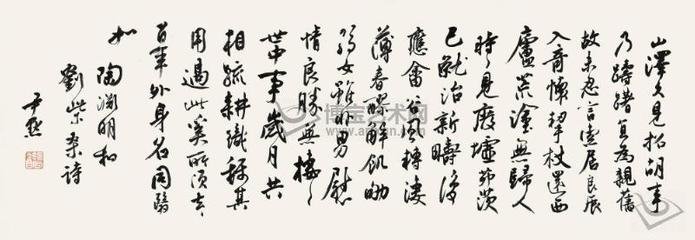 山澤久見招胡事
乃躊躇直為親舊
故未忍言索居良辰
入奇懷挈杖還西
廬荒塗無歸人
時〻見廢墟茅茨
已就治新疇復
應畬谷風轉淒
薄春醪解飢劬
弱女雖非男慰
情良勝無棲〻
世中事歲月共
相疏耕織稱其
用過此奚所須去〻
百年外身名同翳
如
陶淵明和
劉柴桑詩
尹默
博宝艺术网